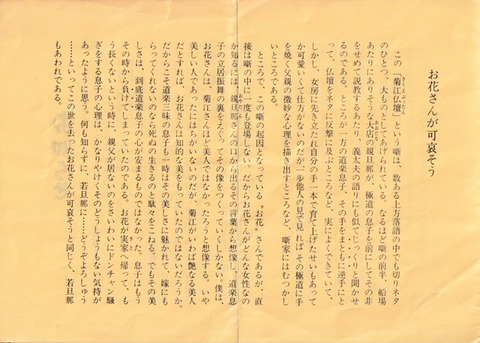 お花さんが可哀そう
この「菊江仏壇」という噺は、数ある上方落語の中でも切りネタ
のひとつ、大ものとしてあげられている。なるほど噺の前半　船場
あたりにありそうな大店の親旦那が、極道の息子を前にしてその非
をせめて説教するあたり、義太夫の語りにも似てじっくりと聞かせ
るのである。ところが一方の道楽息子、その手をまともに逆手にと
って、仏壇をネタに反撃に及ぶところなど、実によくできていて、
しかし、女房に先き立たれ自分の手一本で育て上げたせいもあって
か可愛いくて仕方がないのだが一歩他人の見で見れば、その極道に手
を焼く父親の微妙な心理を描き出すところなど、噺家にはむつかし
いところである。
ところで、この噺の起因となっている〝お花〟さんであるが、直
接は噺の中に一度も登場しない。だからお花さんがどんな女性なの
か知るには、親旦那さんの口から出るその言葉から想像し、道楽息
子の立居振舞の裏をえぐってその像をつくっていくしかない。僕は、
お花さんは、菊江さんほど美人ではなかったろうと想像する。いや
美しい人であったにはちがいないのだが、菊江がいわば艶なる美人
だとすれば、お花さんは知的な美をもっていたのではないだろうか。
だからこそ道楽三昧の息子も一時はその美しさに魅かれて、嫁にも
らってくれないのなら死ぬの生きるのと駄々をこねる。でもその美
しさは、到底道楽息子の心が安まるものではなかった。息子はもう
その時から負けてしまっていたのである。お花が実家へ帰って、も
う長くないという時に、親父が居ないのをさいわいにドンチャン騒
ぎをする息子の心理は、かなりやけくそのどうしようもない気持が
あったように思う。何も知らずに、若旦那に……どうぞよろしゅう
……といってこの世を去ったお花さんが可哀そうと同じく、若旦那
もあわれである。